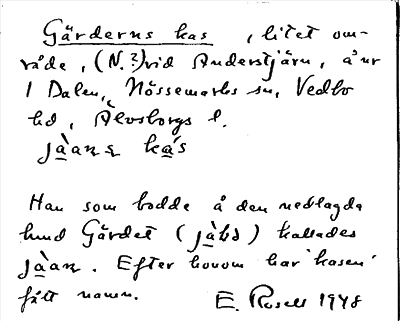 Gärderns kas, litet om-
råde, (N.?) vid Anderstjärn, å nr
1 Dalen, Nössemarks sn, Vedbo
hd, Älvsborgs l.
kás
Han som bodde å den nedlagda
lund Gärdet (          ) kallades
Efter honom har 'kasen'
fått namn. E. Rosell 1948